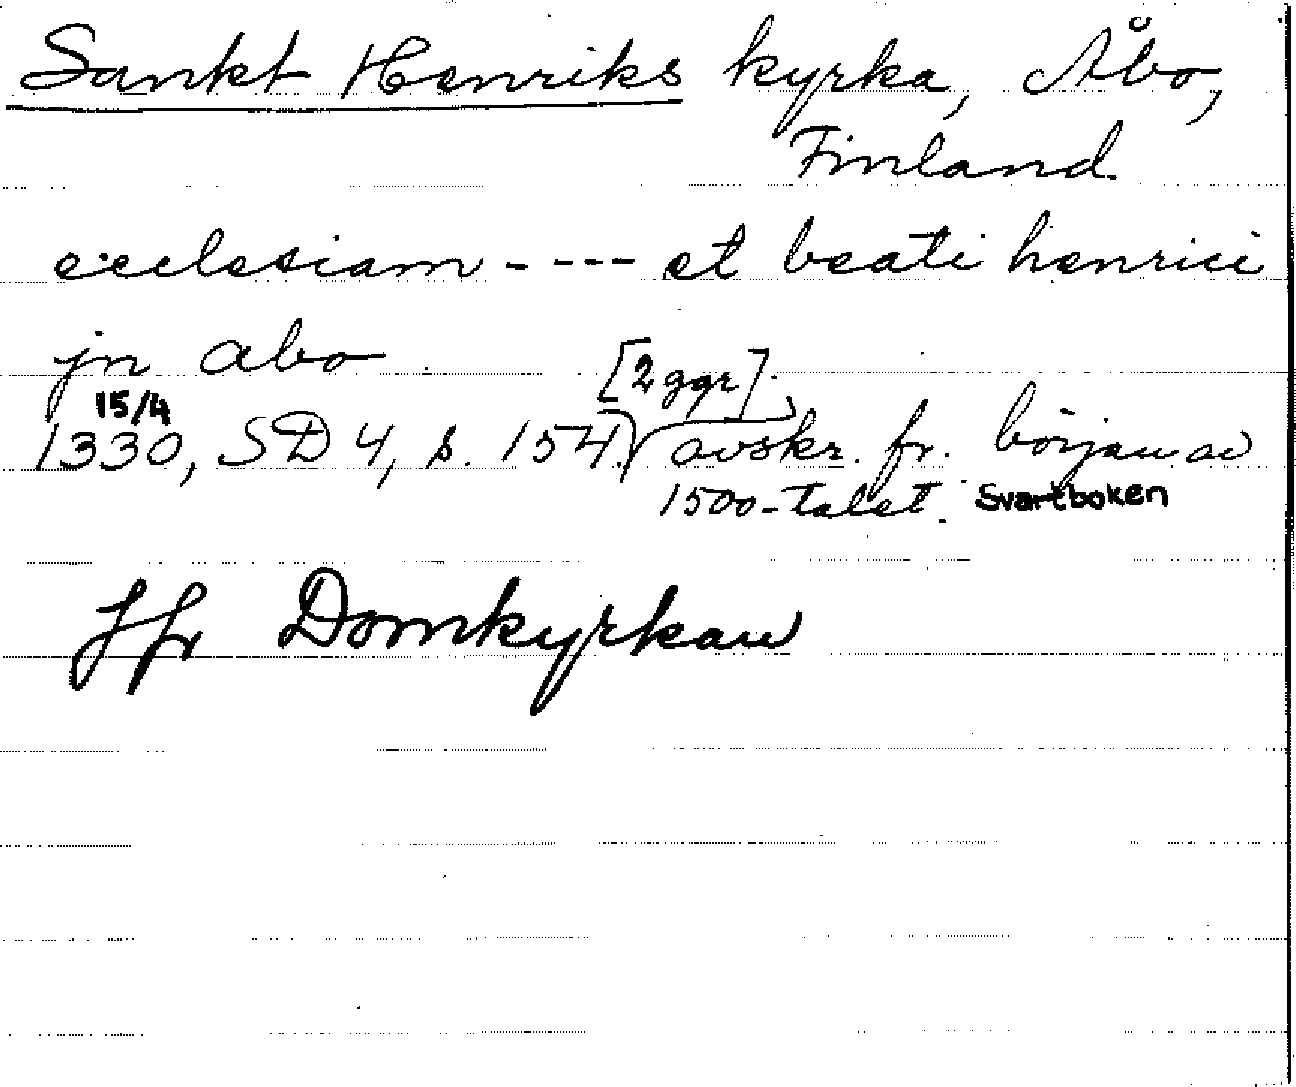 Sankt Henriks kyrka, Åbo,
Finland.
ecclesiam ---- et beati henrici
jn abo
[2 ggr]
15/4
1330, SD 4, s. 154, avskr. fr. början av
1500-talet. Svartboken
Jfr Domkyrkan